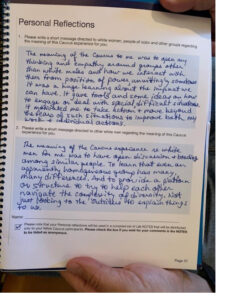 Personal Reflections
1. Please write a short message directed to white women, people of color and other groups regarding
the meaning of this Caucus experience for you.
The meaning of the Caucus to me was to open my
thinking and empathy around groups other
than white males and how we interact with
them from position of power, unwittingly sometimes.
It was a huge learning about the impact we
can have. It gave tools and some ideas on how
to engage or deal with special difficult situations.
It motivated me to take action & move beyond
the fears of such situations to improve both my
world & individual actions.
Please write a short message directed to other white men regarding the meaning of this Caucus
experience for you.
The meaning of the Caucus experience as white
men for me was to have open discussion & bonding
among similar people. To learn that even an
apparently homogeneous group has many,
many differences. And to provide a platform
or structure to try to help each other
navigate the complexity of diversity. Not
just looking to the "outsiders" to explain things
to us.
Name
Please note that your Personal reflections will be used in
to your White Caucus participants. Please check the box if you wish for your comments in the NOTES
to be listed as anonymous.